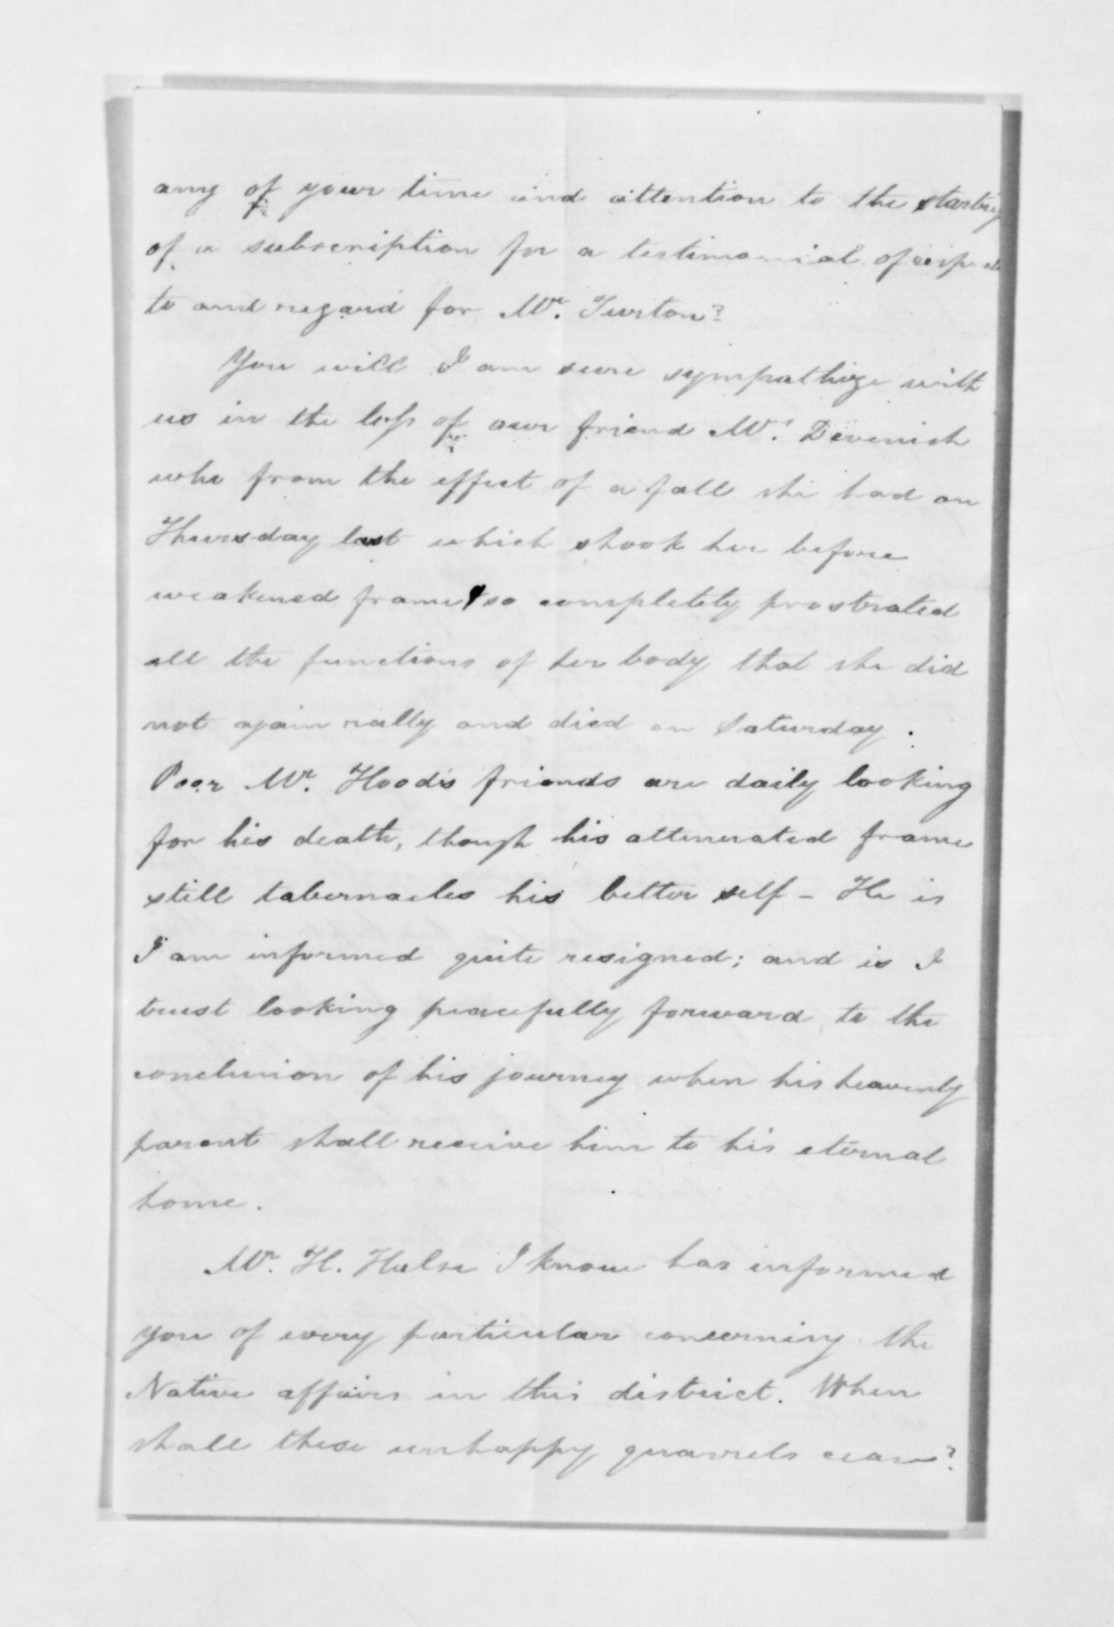 any of your time and attention to the starting
of a subscription for a testimonial of respect
to and regard for Mr. Turton?
You will I am sure sympathize with
us in the loss of our friend Mrs. Devenish
who from the effect of a fall she had on
Thursday last which shook her before
weakened frame, so completely prostrated
all the functions of her body that she did
not again rally and died on Saturday.
Poor Mr. Hood's friends are daily looking
for his death, though his attenuated frame
still tabernacles his better self - He is
I am informed quite resigned; and is I
trust looking peacefully forward to the
conclusion of his journey when his heavenly
parent shall receive him to his eternal
home.
Mr. H. Hulse I know has informed
you of every particular concerning the
Native affairs in this district. When
shall these unhappy quarrels cease?